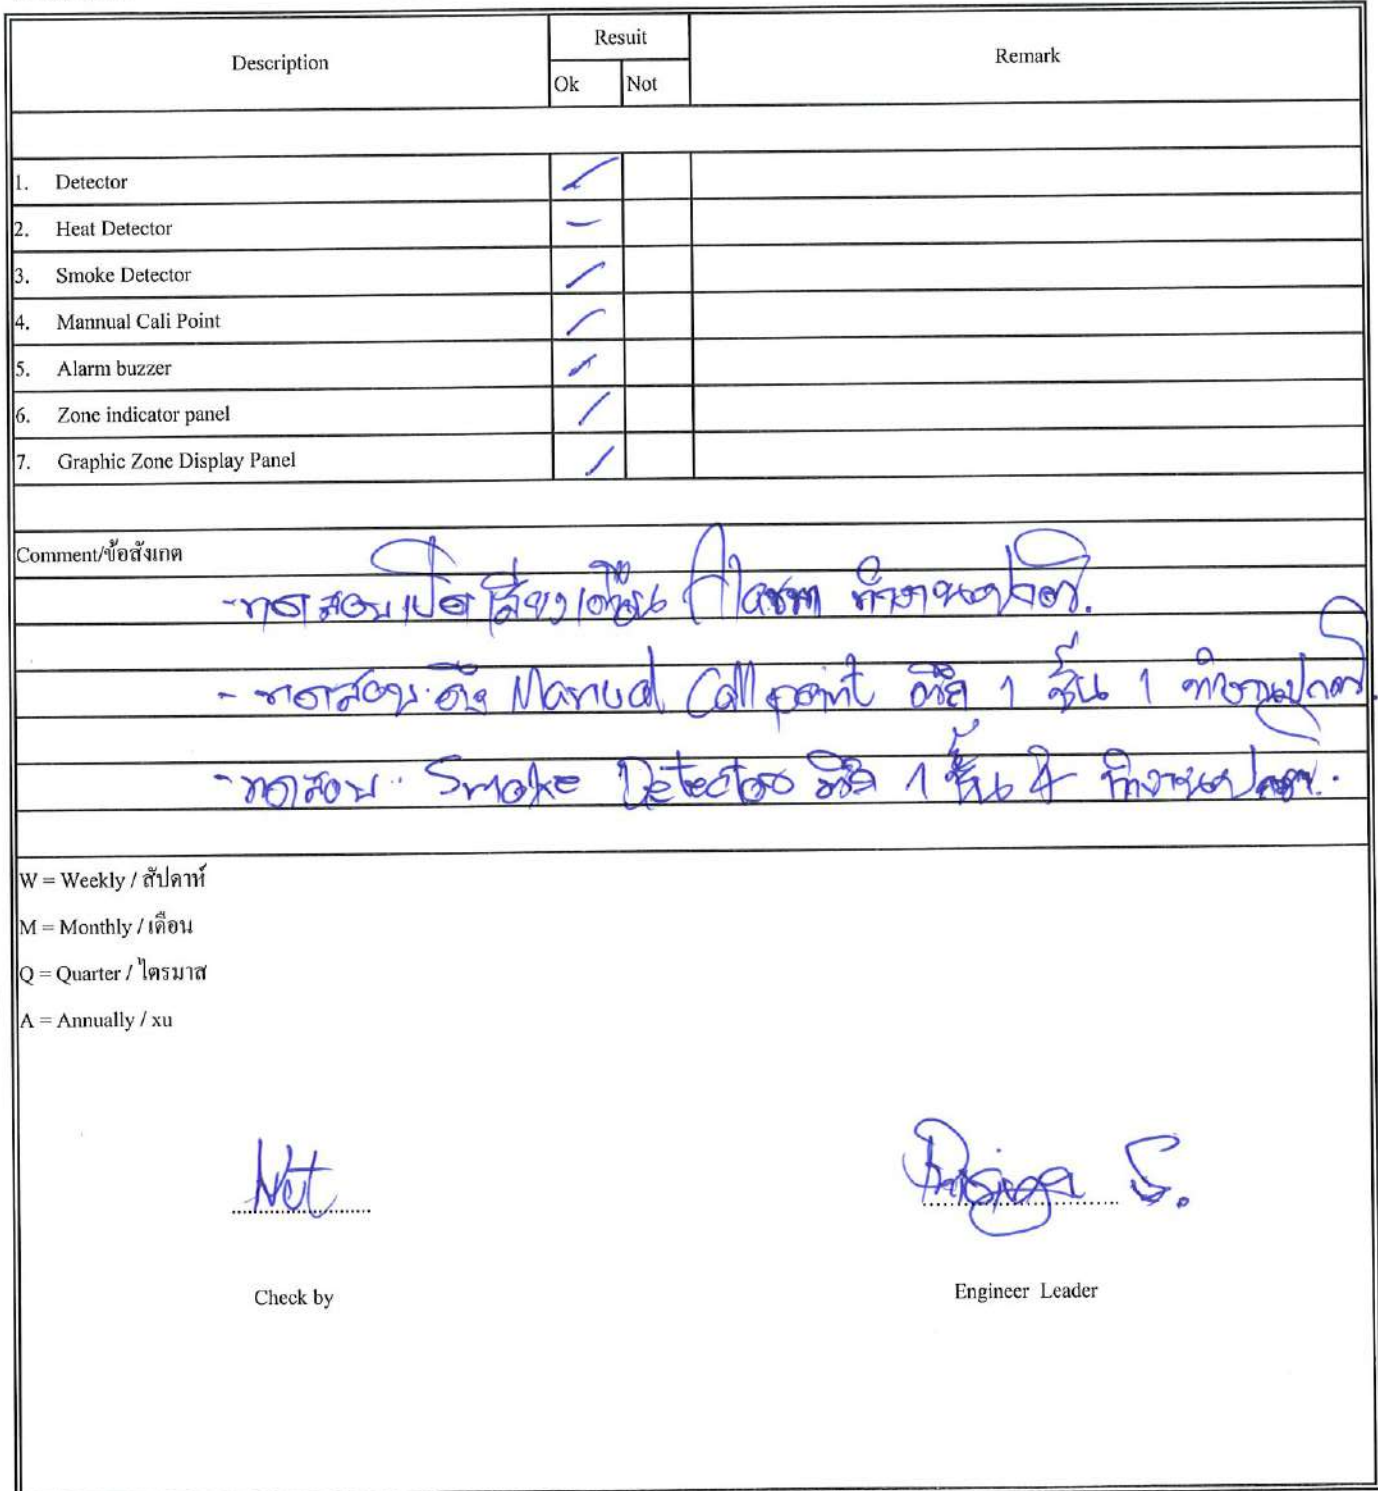 Description Resuit Remark
Ok Not
1. Detector ✓
2. Heat Detector –
3. Smoke Detector ✓
4. Mannual Cali Point ✓
5. Alarm buzzer ✓
6. Zone indicator panel ✓
7. Graphic Zone Display Panel ✓
Comment/ข้อสังเกต
-ทดสอบเปิดเสียงเตือน Alarm ทำงานปกติ.
- ทดสอบ ดึง Manual Call point ตึก 1 ชั้น 1 ทำงานปกติ.
-ทดสอบ Smoke Detector ตึก 1 ชั้น ทำงานปกติ.
W = Weekly / สัปดาห์
M = Monthly / เดือน
Q = Quarter / ไตรมาส
A = Annually / xu
S.
Check by Engineer Leader